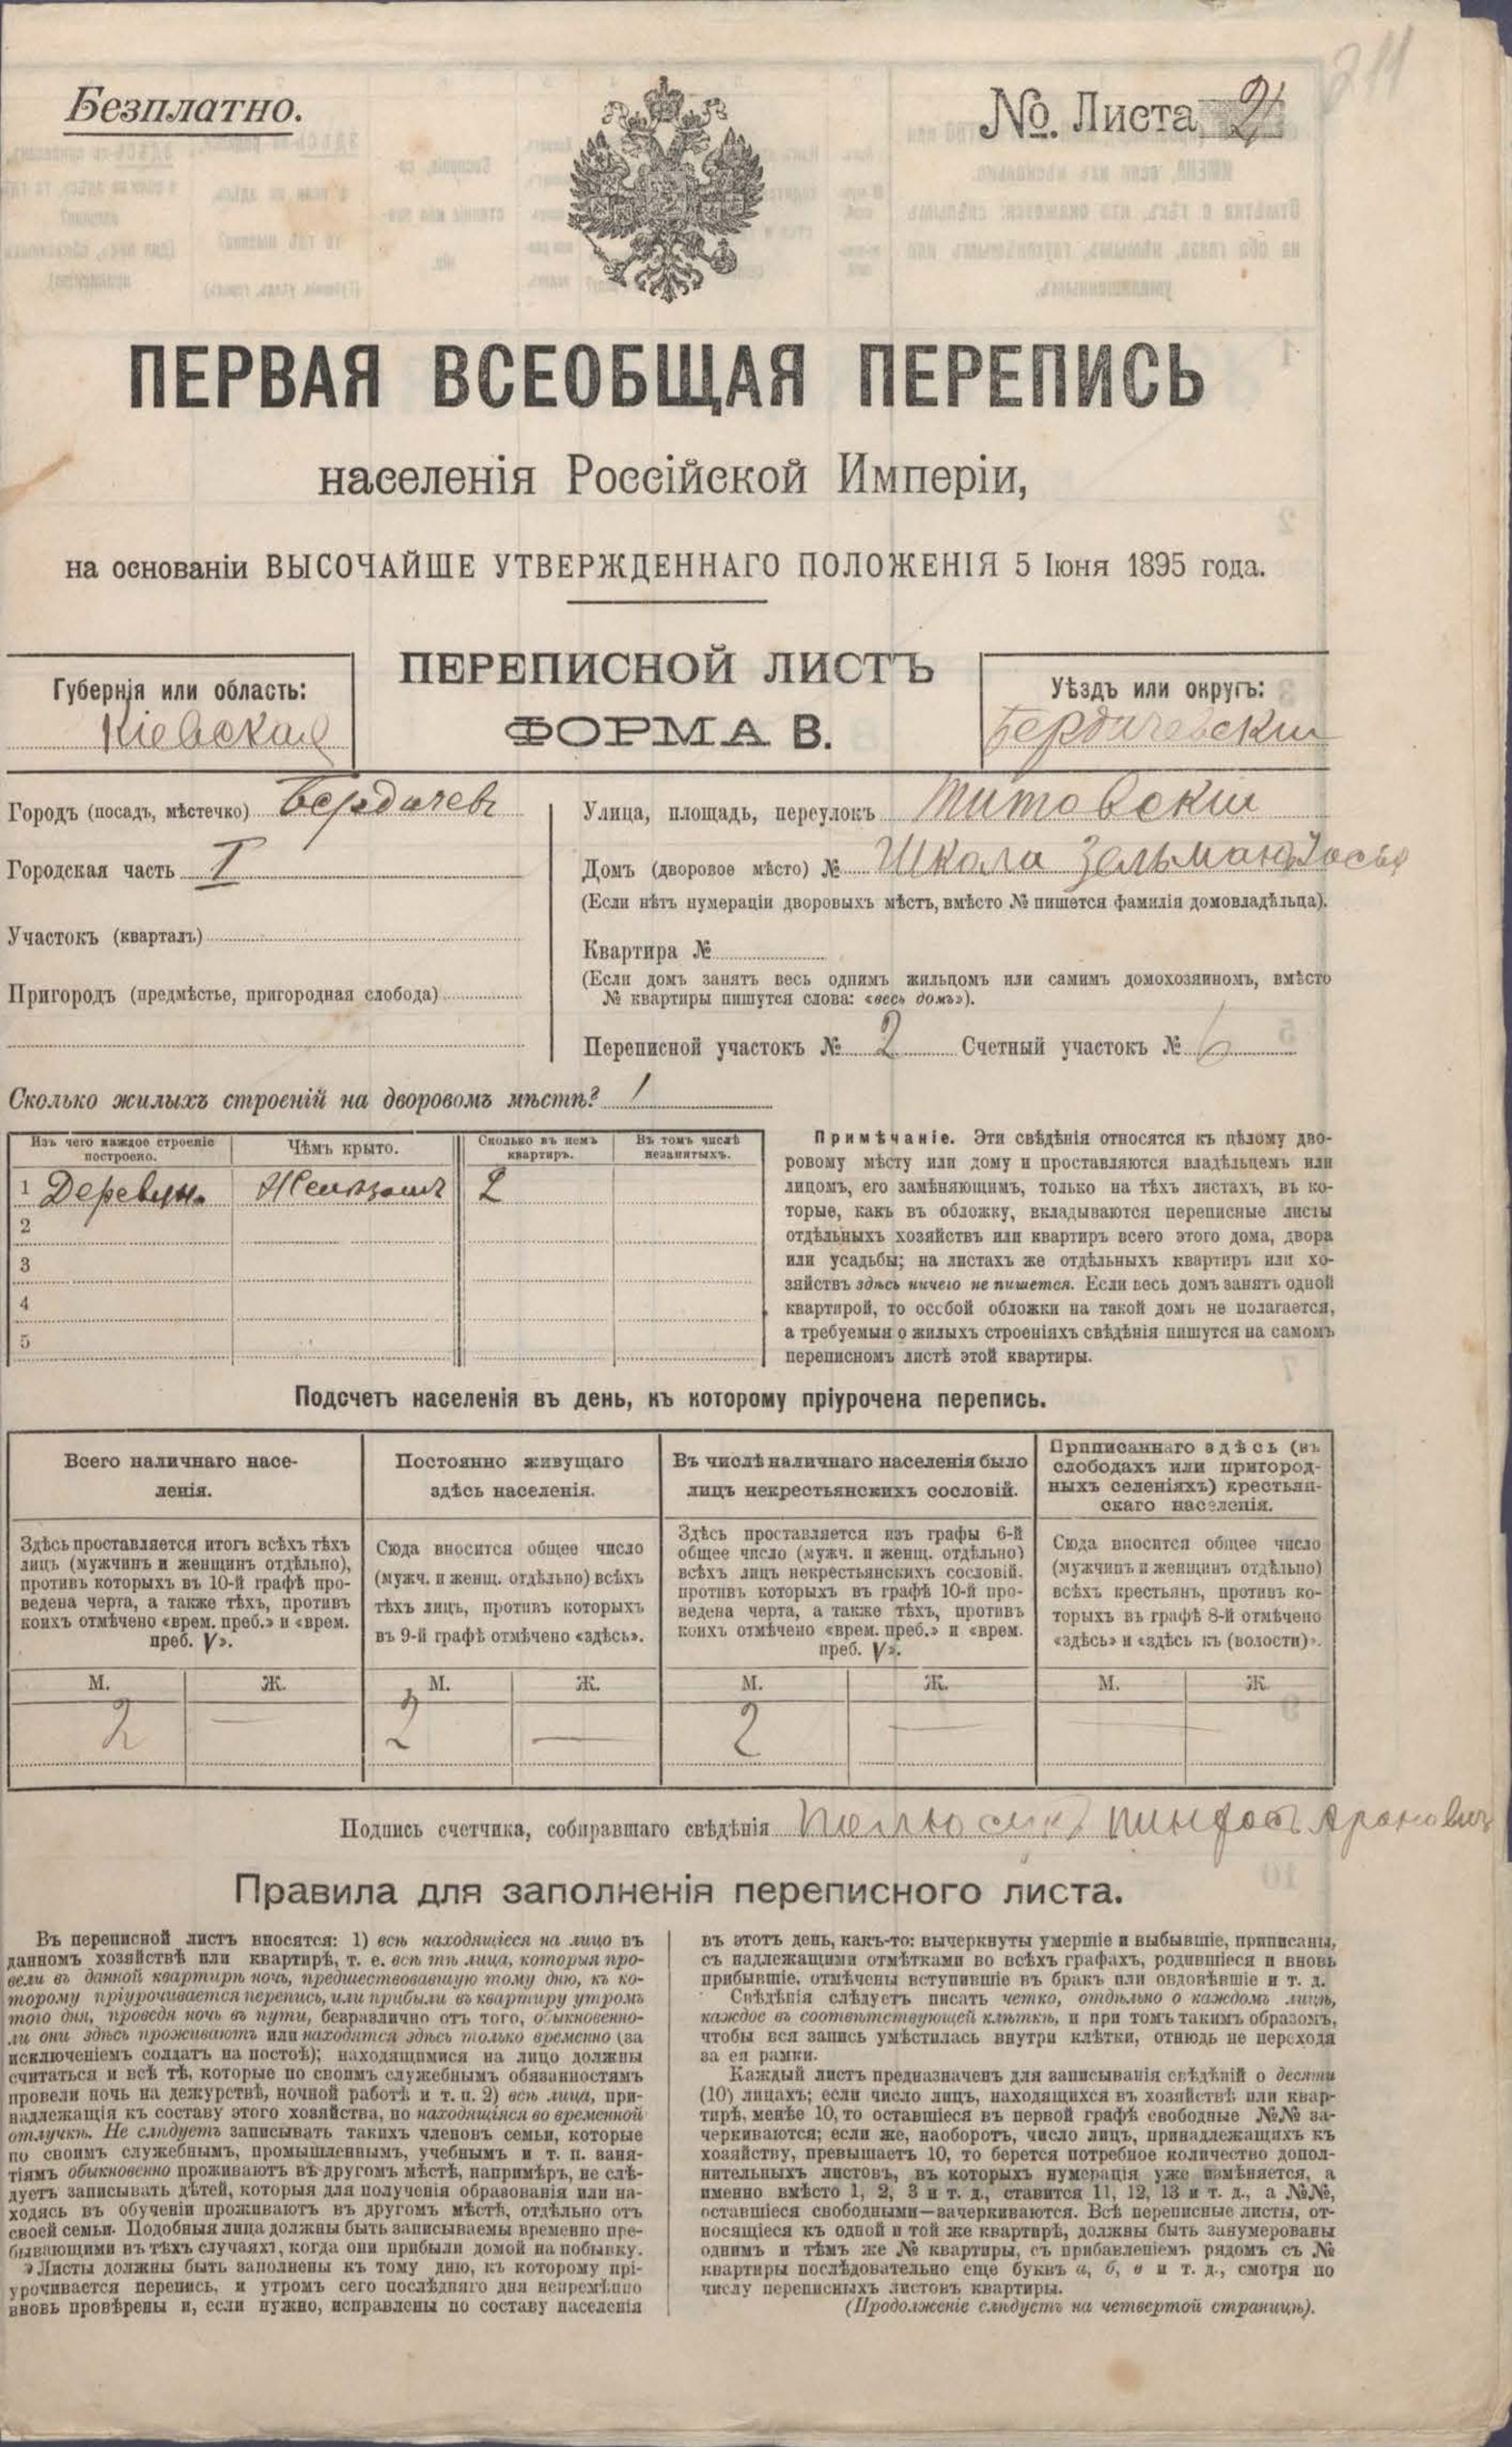 Безплатно.
№. Листа 2
211
ПЕРВАЯ ВСЕОБЩАЯ ПЕРЕПИСЬ
населенія Россійской Имперіи,
на основаніи ВЫСОЧАЙШЕ УТВЕРЖДЕННАГО ПОЛОЖЕНІЯ 5 Іюня 1895 года.
Губернія или область:
Кіевская
ПЕРЕПИСНОЙ ЛИСТЪ
ФОРМА В.
Уѣздъ или округъ:
Бердичевскій
Городъ (посадъ, мѣстечко) Бердичевъ
Городская часть I
Участокъ (кварталъ)
Пригородъ (предмѣстье, пригородная слобода)
Улица, площадь, переулокъ Титовскій
Домъ (дворовое мѣсто) № Школа Зельмана
(Если нѣтъ нумераціи дворовыхъ мѣстъ, вмѣсто № пишется фамилія домовладѣльца).
Квартира №
(Если домъ занятъ весь однимъ жильцомъ или самимъ домохозяиномъ, вмѣсто
№ квартиры пишутся слова: «весь домъ»).
Переписной участокъ № 2 Счетный участокъ № 6
Сколько жилыхъ строеній на дворовомъ мѣстѣ? 1
Изъ чего каждое строеніе построено. Чѣмъ крыто. Сколько въ немъ квартиръ. Въ томъ числѣ незанятыхъ.
1 Деревян. Желѣзомъ 2
2
3
4
5
Примѣчаніе. Эти свѣдѣнія относятся къ цѣлому дво-
ровому мѣсту или дому и проставляются владѣльцемъ или
лицомъ, его замѣняющимъ, только на тѣхъ листахъ, въ ко-
торые, какъ въ обложку, вкладываются переписные листы
отдѣльныхъ хозяйствъ или квартиръ всего этого дома, двора
или усадьбы; на листахъ же отдѣльныхъ квартиръ или хо-
зяйствъ здѣсь ничего не пишется. Если весь домъ занятъ одной
квартирой, то особой обложки на такой домъ не полагается,
а требуемыя о жилыхъ строеніяхъ свѣдѣнія пишутся на самомъ
переписномъ листѣ этой квартиры.
Подсчетъ населенія въ день, къ которому пріурочена перепись.
Всего наличнаго насе-
ленія.
Здѣсь проставляется итогъ всѣхъ тѣхъ
лицъ (мужчинъ и женщинъ отдѣльно),
противъ которыхъ въ 10-й графѣ про-
ведена черта, а также тѣхъ, противъ
коихъ отмѣчено «врем. преб.» и «врем.
преб. V».
Постоянно живущаго
здѣсь населенія.
Сюда вносится общее число
(мужч. и женщ. отдѣльно) всѣхъ
тѣхъ лицъ, противъ которыхъ
въ 9-й графѣ отмѣчено «здѣсь».
Въ числѣ наличнаго населенія было
лицъ некрестьянскихъ сословій.
Здѣсь проставляется изъ графы 6-й
общее число (мужч. и женщ. отдѣльно)
всѣхъ лицъ некрестьянскихъ сословій,
противъ которыхъ въ графѣ 10-й про-
ведена черта, а также тѣхъ, противъ
коихъ отмѣчено «врем. преб.» и «врем.
преб. V».
Приписаннаго здѣсь (въ
слободахъ или пригород-
ныхъ селеніяхъ) крестьян-
скаго населенія.
Сюда вносится общее число
(мужчинъ и женщинъ отдѣльно)
всѣхъ крестьянъ, противъ ко-
торыхъ въ графѣ 8-й отмѣчено
«здѣсь» и «здѣсь къ (волости)».
М. Ж. М. Ж. М. Ж. М. Ж.
2 — 2 — 2 — —
Подпись счетчика, собиравшаго свѣдѣнія Пинхосъ Ароновичъ
Правила для заполненія переписного листа.
Въ переписной листъ вносятся: 1) всѣ находящіеся на лицо въ
данномъ хозяйствѣ или квартирѣ, т. е. всѣ тѣ лица, которыя про-
вели въ данной квартирѣ ночь, предшествовавшую тому дню, къ ко-
торому пріурочивается перепись, или прибыли въ квартиру утромъ
того дня, проведя ночь въ пути, безразлично отъ того, обыкновенно-
ли они здѣсь проживаютъ или находятся здѣсь только временно (за
исключеніемъ солдатъ на постоѣ); находящимися на лицо должны
считаться и всѣ тѣ, которые по своимъ служебнымъ обязанностямъ
провели ночь на дежурствѣ, ночной работѣ и т. п. 2) всѣ лица, при-
надлежащія къ составу этого хозяйства, но находящіяся во временной
отлучкѣ. Не слѣдуетъ записывать такихъ членовъ семьи, которые
по своимъ служебнымъ, промышленнымъ, учебнымъ и т. п. заня-
тіямъ обыкновенно проживаютъ въ другомъ мѣстѣ, напримѣръ, не слѣ-
дуетъ записывать дѣтей, которыя для полученія образованія или на-
ходясь въ обученіи проживаютъ въ другомъ мѣстѣ, отдѣльно отъ
своей семьи. Подобныя лица должны быть записываемы временно пре-
бывающими въ тѣхъ случаяхъ, когда они прибыли домой на побывку.
Листы должны быть заполнены къ тому дню, къ которому прі-
урочивается перепись, и утромъ сего послѣдняго дня непремѣнно
вновь провѣрены и, если нужно, исправлены по составу населенія
въ этотъ день, какъ-то: вычеркнуты умершіе и выбывшіе, приписаны,
съ надлежащими отмѣтками во всѣхъ графахъ, родившіеся и вновь
прибывшіе, отмѣчены вступившіе въ бракъ или овдовѣвшіе и т. д.
Свѣдѣнія слѣдуетъ писать четко, отдѣльно о каждомъ лицѣ,
каждое въ соотвѣтствующей клѣткѣ, и при томъ такимъ образомъ,
чтобы вся запись умѣстилась внутри клѣтки, отнюдь не переходя
за ея рамки.
Каждый листъ предназначенъ для записыванія свѣдѣній о десяти
(10) лицахъ; если число лицъ, находящихся въ хозяйствѣ или квар-
тирѣ, менѣе 10, то оставшіеся въ первой графѣ свободные №№ за-
черкиваются; если же, наоборотъ, число лицъ, принадлежащихъ къ
хозяйству, превышаетъ 10, то берется потребное количество допол-
нительныхъ листовъ, въ которыхъ нумерація уже измѣняется, а
именно вмѣсто 1, 2, 3 и т. д., ставится 11, 12, 13 и т. д., а №№,
оставшіеся свободными—зачеркиваются. Всѣ переписные листы, от-
носящіеся къ одной и той же квартирѣ, должны быть занумерованы
однимъ и тѣмъ же № квартиры, съ прибавленіемъ рядомъ съ №
квартиры послѣдовательно еще буквъ а, б, в и т. д., смотря по
числу переписныхъ листовъ квартиры.
(Продолженіе слѣдуетъ на четвертой страницѣ).